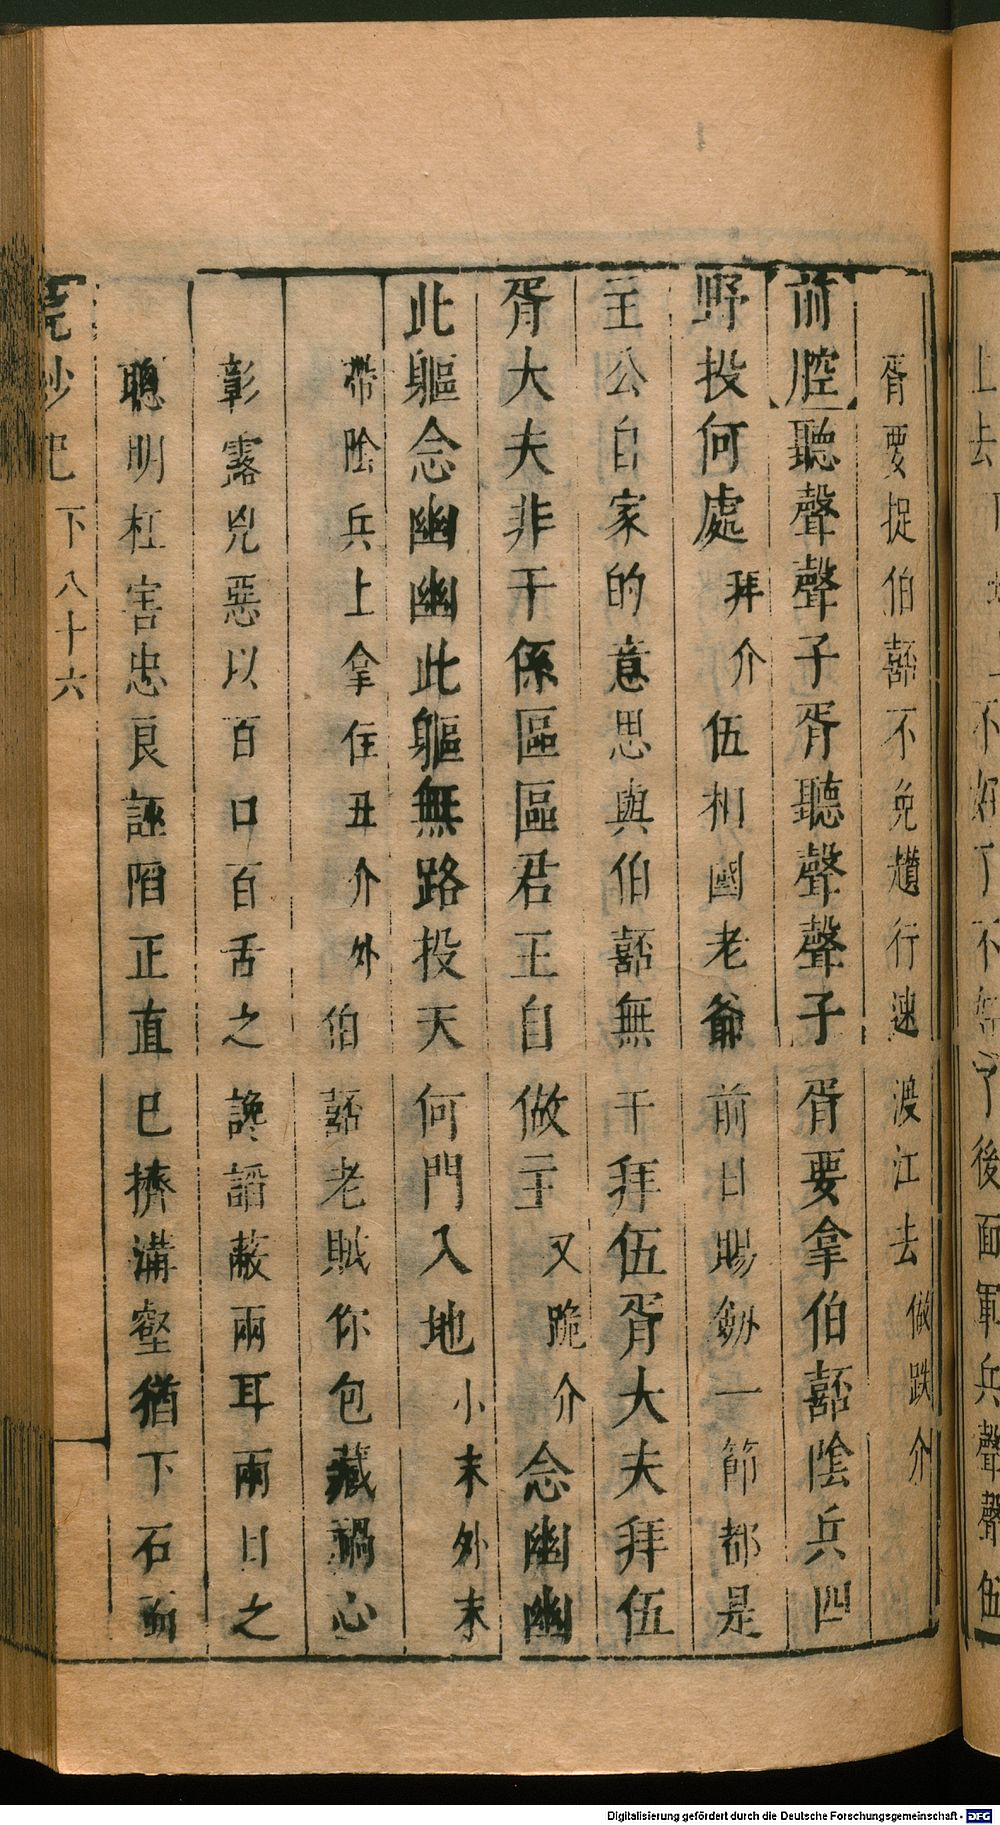 胥要捉伯嚭不免趲行速渡江去做跌介
前腔聽聲聲子胥聽聲聲子胥要拿伯嚭陰兵四
野投何處拜介伍相國老爺前日賜劒一節都是
主公自家的意思與伯嚭無干拜伍胥大夫拜伍
胥大夫非干係區區君王自做主又跪介念幽幽
此軀念幽幽此軀無路投天何門入地小末外末
帶陰兵上拿住丑介外伯嚭老賊你包藏禍心
彰露兇惡以百口百舌之讒謟蔽兩耳兩目之
聰明枉害忠良誣陷正直已擠溝壑猶下石而
下八十六
後面軍兵聲聲伍
Digitalisierung gefördert durch die Deutsche Forschungsgemeinschaft - DFG